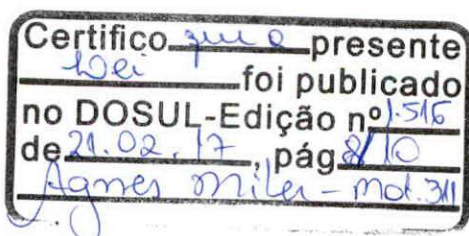 Certifico que a presente
Lei foi publicado
no DOSUL-Edição nº 1.516
de 21.02.17, pág 8/10
Agnes Miler - mat. 311